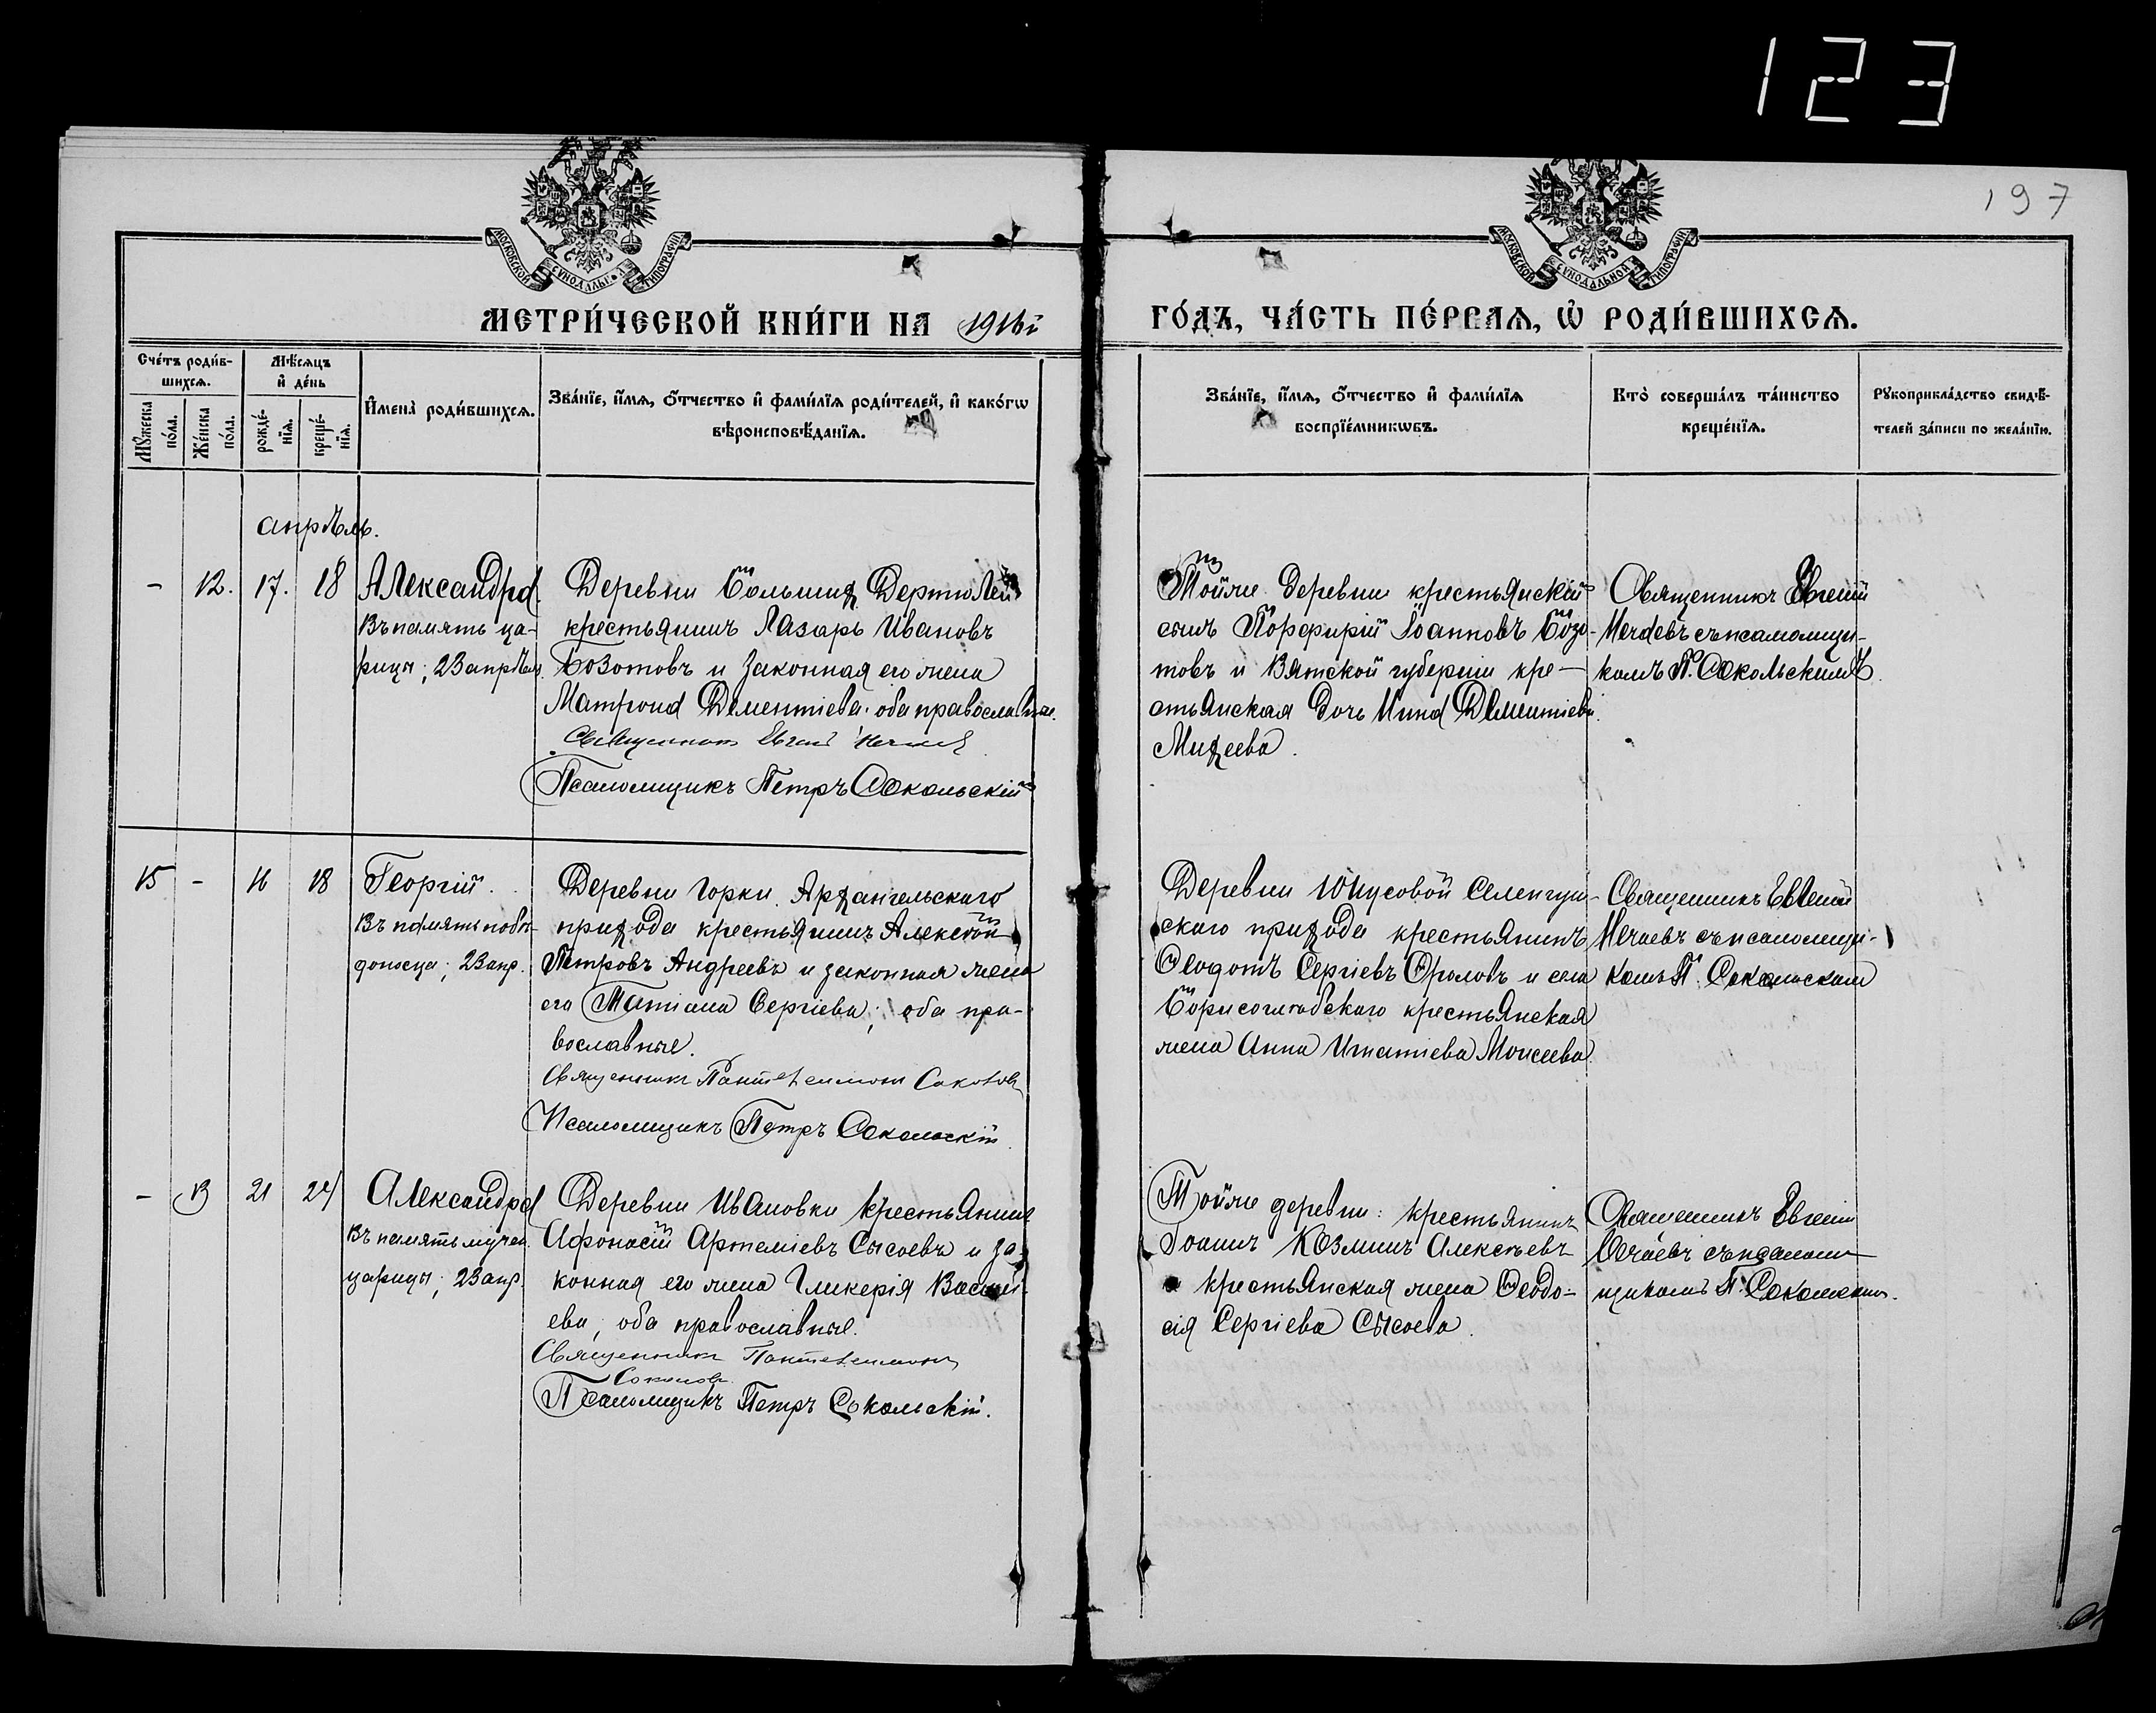 123
197
МОСКОВСКОЙ СѴНОДАЛЬНОЙ ТИПОГРАФІИ
МОСКОВСКОЙ СѴНОДАЛЬНОЙ ТИПОГРАФІИ
МЕТРИ́ЧЕСКОЙ КНИ́ГИ НА 1916й ГО́ДЪ, ЧА́СТЬ ПЕ́РВАѦ, Ѡ҆ РОДИ́ВШИХСѦ.
Сче́тъ роди́в-
шихсѧ.
Мѣ́сѧцъ
и҆ де́нь
Мꙋ́жеска
по́ла.
Же́нска
по́ла.
рожде́-
нїѧ.
креще́-
нїѧ.
И҆мена̀ роди́вшихсѧ.
Зва́нїе, и҆́мѧ, ѻ҆́тчество и҆ фами́лїѧ роди́телей, и҆ како́гѡ
вѣроисповѣ́данїѧ.
Зва́нїе, и҆́мѧ, ѻ҆́тчество и҆ фами́лїѧ
воспрїе́мникѡвъ.
Кто̀ соверша́лъ та́инство
креще́нїѧ.
Рꙋкоприкла́дство свидѣ́-
телей за́писи по жела́нїю.
апрѣль.
- 12. 17. 18 Александра.
Въ память ца-
рицы; 23 апрѣля.
Деревни Большихъ
крестьянинъ Лазарь Ивановъ
Бозотовъ и законная его жена
Матрона Дементіева; оба православные.
Священникъ Евгеній Мечаевъ
Псаломщикъ Петръ Сокольскій
Тойже деревни крестьянскій
сынъ Порфирій Іоанновъ Бозо-
товъ и Вятской губерніи кре-
стьянская дочь Анна Дементіева
Михеева.
Священникъ Евгеній
Мечаевъ съ псаломщи-
комъ П. Сокольскимъ.
15 - 16 18 Георгій.
Въ память побѣ-
доносца; 23 апр.
Деревни Горки Архангельскаго
прихода крестьянинъ Алексѣй
Петровъ Андреевъ и законная жена
его Татіана Сергіева; оба пра-
вославные.
Священникъ Пантелеимонъ Соколовъ
Псаломщикъ Петръ Сокольскій
Деревни Юнусовой Селенгуш-
скаго прихода крестьянинъ
Ѳеодотъ Сергіевъ Фроловъ и села
Борисоглѣбскаго крестьянская
жена Анна Игнатіева Моисеева.
Священникъ Евгеній
Мечаевъ съ псаломщи-
комъ П. Сокольскимъ
- 13 21 24 Александра
Въ память мучен.
царицы; 23 апр.
Деревни Ивановки крестьянинъ
Афонасій Артеміевъ Сысоевъ и за-
конная его жена Гликерія Василі-
ева, оба православные.
Священникъ Пантелеимонъ
Соколовъ
Псаломщикъ Петръ Сокольскій.
Тойже деревни: крестьянинъ
Іоаннъ Козминъ Алексѣевъ
крестьянская жена Ѳеодо-
сія Сергіева Сысоева.
Священникъ Евгеній
Мечаевъ съ псалом-
щикомъ П. Сокольским.